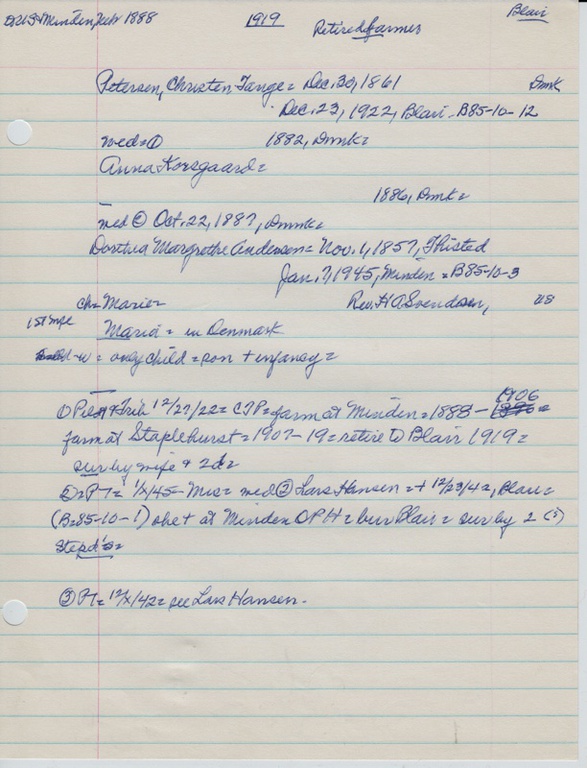 DK US Minden, Nebr 1888 1919 Retired farmer Blair
Petersen, Christen Tange = Dec. 30, 1861 Dmk
Dec. 23, 1922, Blair - B85-10-12
wed = ① 1882, Dmnk =
Anna Korsgaard =
1886, Dmk =
wed ② Oct. 22, 1887, Dmnk =
Dorthea Margrethe Andersen = Nov. 1, 1857, Thisted
Jan. 7, 1945, Minden = B85-10-3
ch = Marie = Rev. H O Svendsen, US
1st wife Maria = in Denmark
2nd w = only child = son + infancy =
① Pilot & Trib 12/27/22 = CTP = farm at Minden = 1888 - 1906
farm at Staplehurst = 1907-19 = retire to Blair 1919 =
sur by wife + 2d =
② PT = 1/x/45 - Mrs = wed ② Lars Hansen = + 12/23/42, Blair =
(B=85-10-1) she + at Minden OPH = bur Blair = sur by 2 (?)
Stepd's =
③ PT = 12/x/42 = see Lars Hansen.